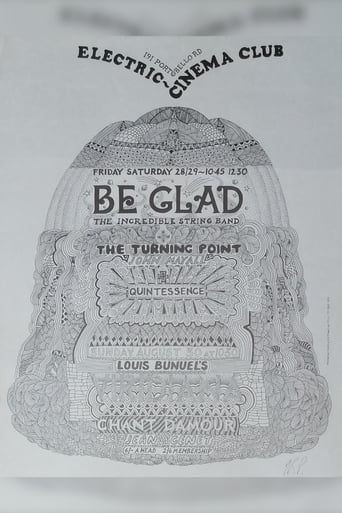 ELECTRIC~CINEMA CLUB
191 PORTOBELLO RD
FRIDAY SATURDAY 28/29~1045 1230
BE GLAD
THE INCREDIBLE STRING BAND
THE TURNING POINT
JOHN MAYALL
QUINTESSENCE
SUNDAY AUGUST 30 AT 1030
LOUIS BUNUEL'S
CHANT D'AMOUR
JEAN GENET
6/- A HEAD 2/6 MEMBERSHIP